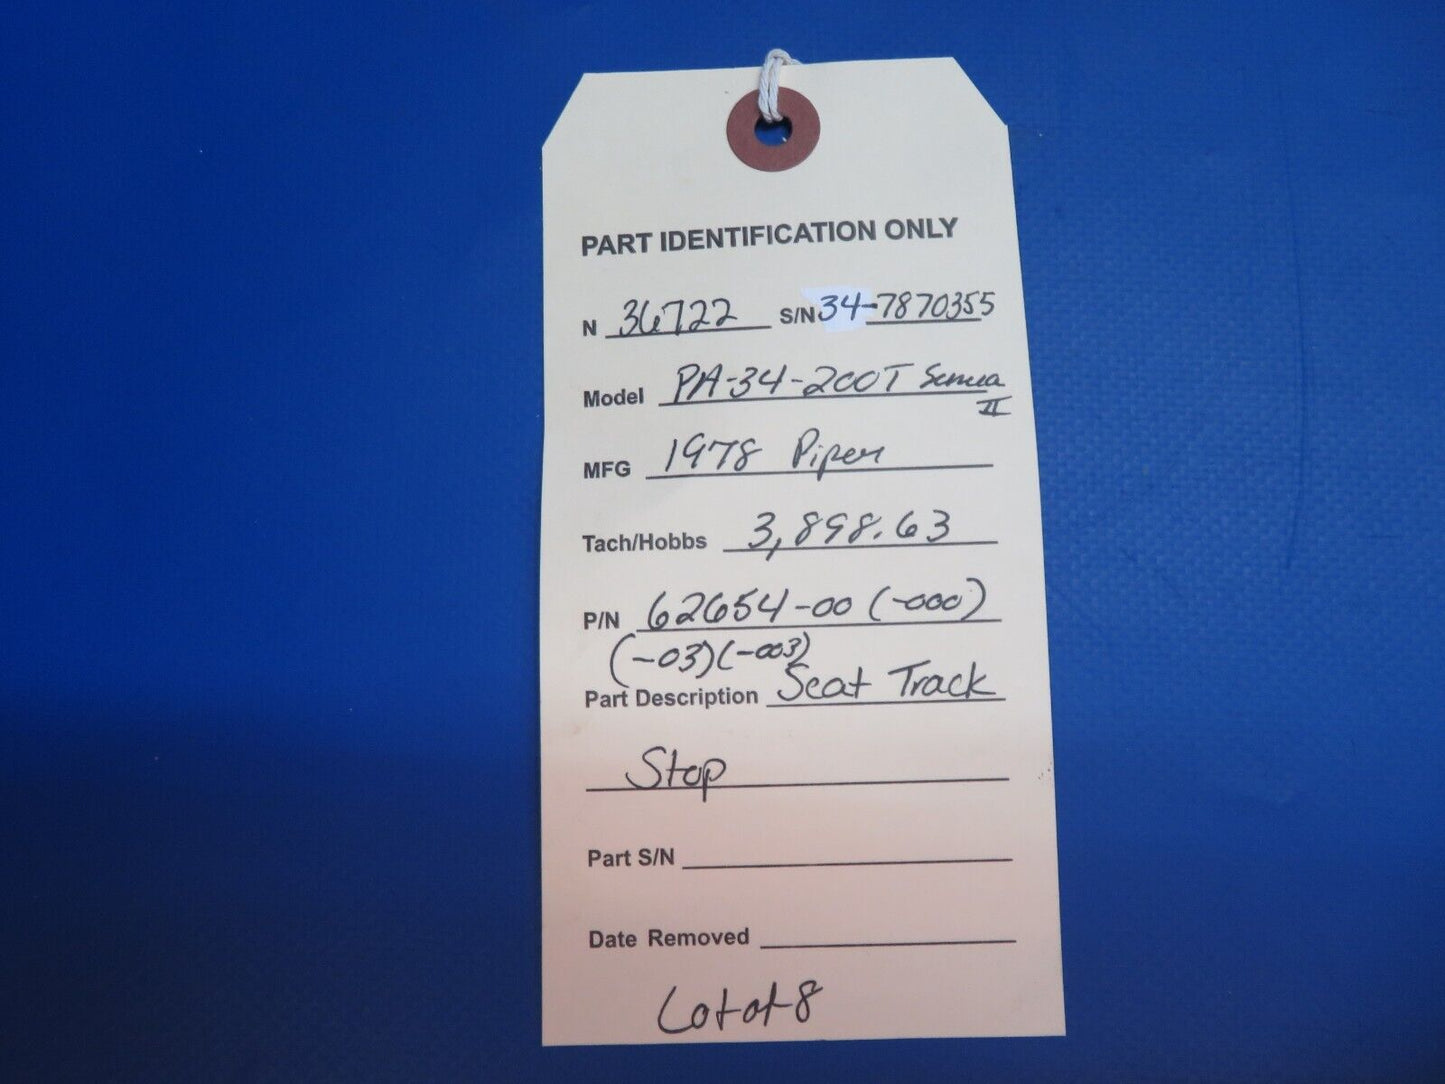 PART IDENTIFICATION ONLY
N 36722 S/N 34-7870355
Model PA-34-200T Seneca
II
MFG 1978 Piper
Tach/Hobbs 3,898.63
P/N 62654-00 (-000)
(-03)(-003)
Part Description Seat Track
Stop
Part S/N
Date Removed
Lot of 8